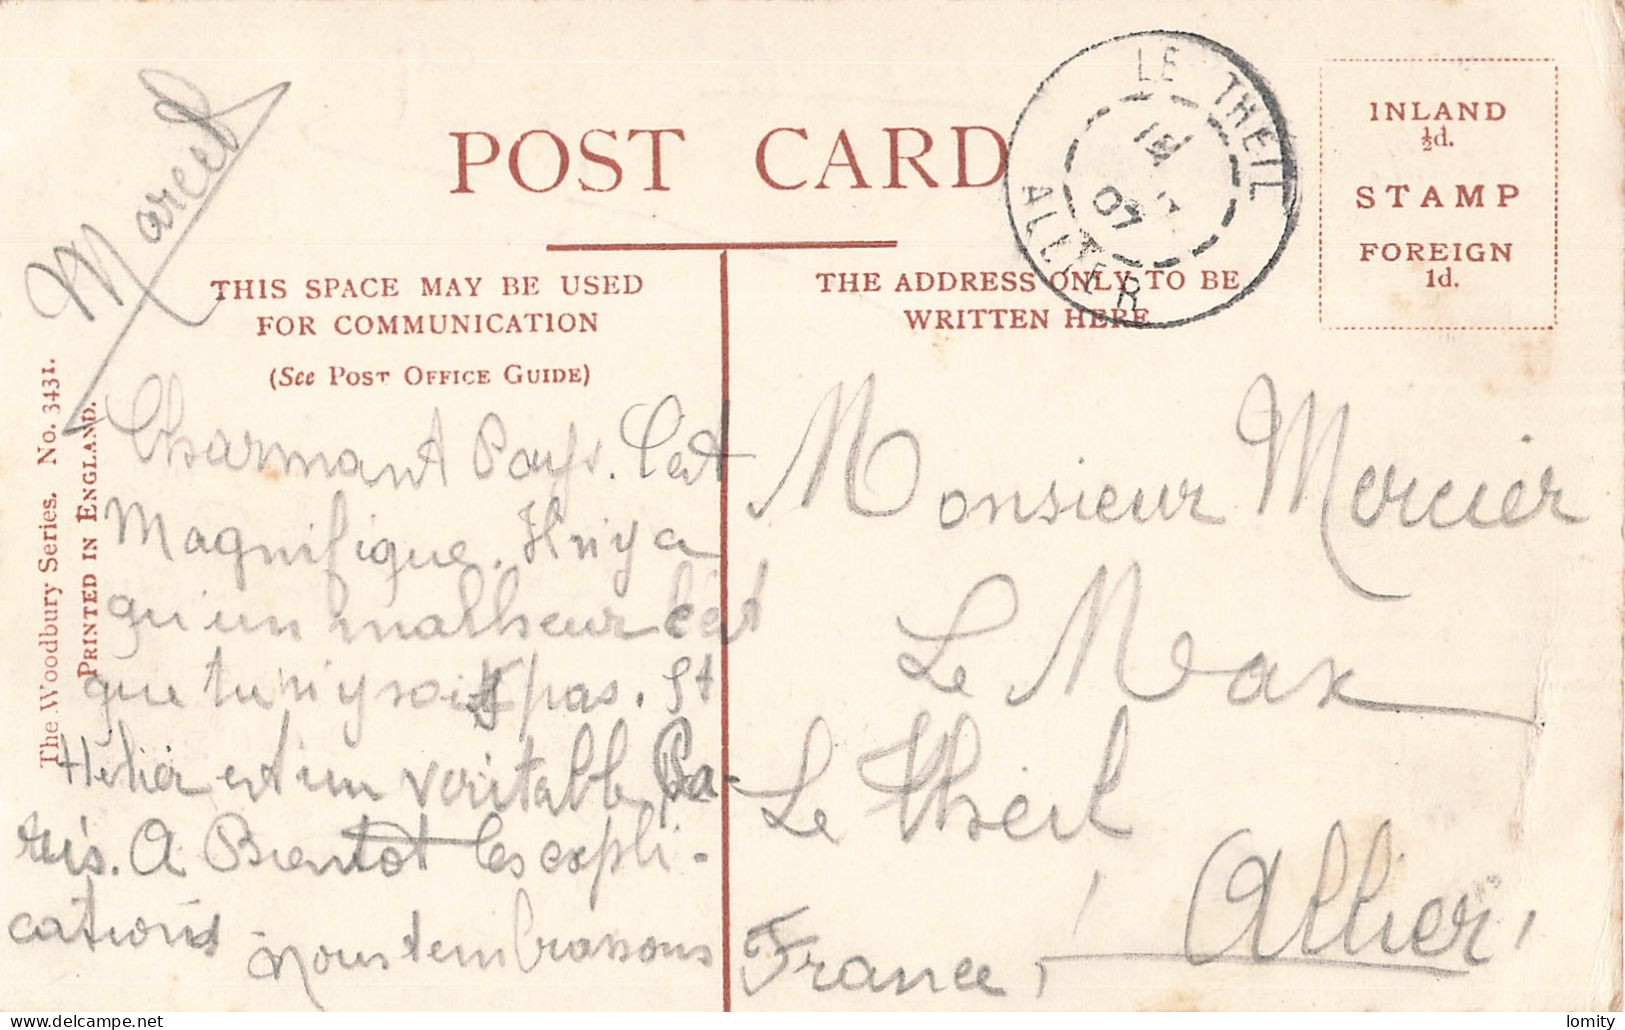 POST CARD
THIS SPACE MAY BE USED
FOR COMMUNICATION
(See POST OFFICE GUIDE)
THE ADDRESS ONLY TO BE
WRITTEN HERE
INLAND
½d.
STAMP
FOREIGN
1d.
LE THEIL
07
ALLIER
The Woodbury Series. No. 3431.
PRINTED IN ENGLAND.
Marcel
Charmant Pays. C'est
Magnifique. Il n'y a
qu'un malheur c'est
que tu n'y sois pas. St
Hélier est un veritable Pa-
ris. A Bientot les expli-
cations nous t'embrassons
Monsieur Mercier
Le Max
Le Theil
Allier
France
lomity